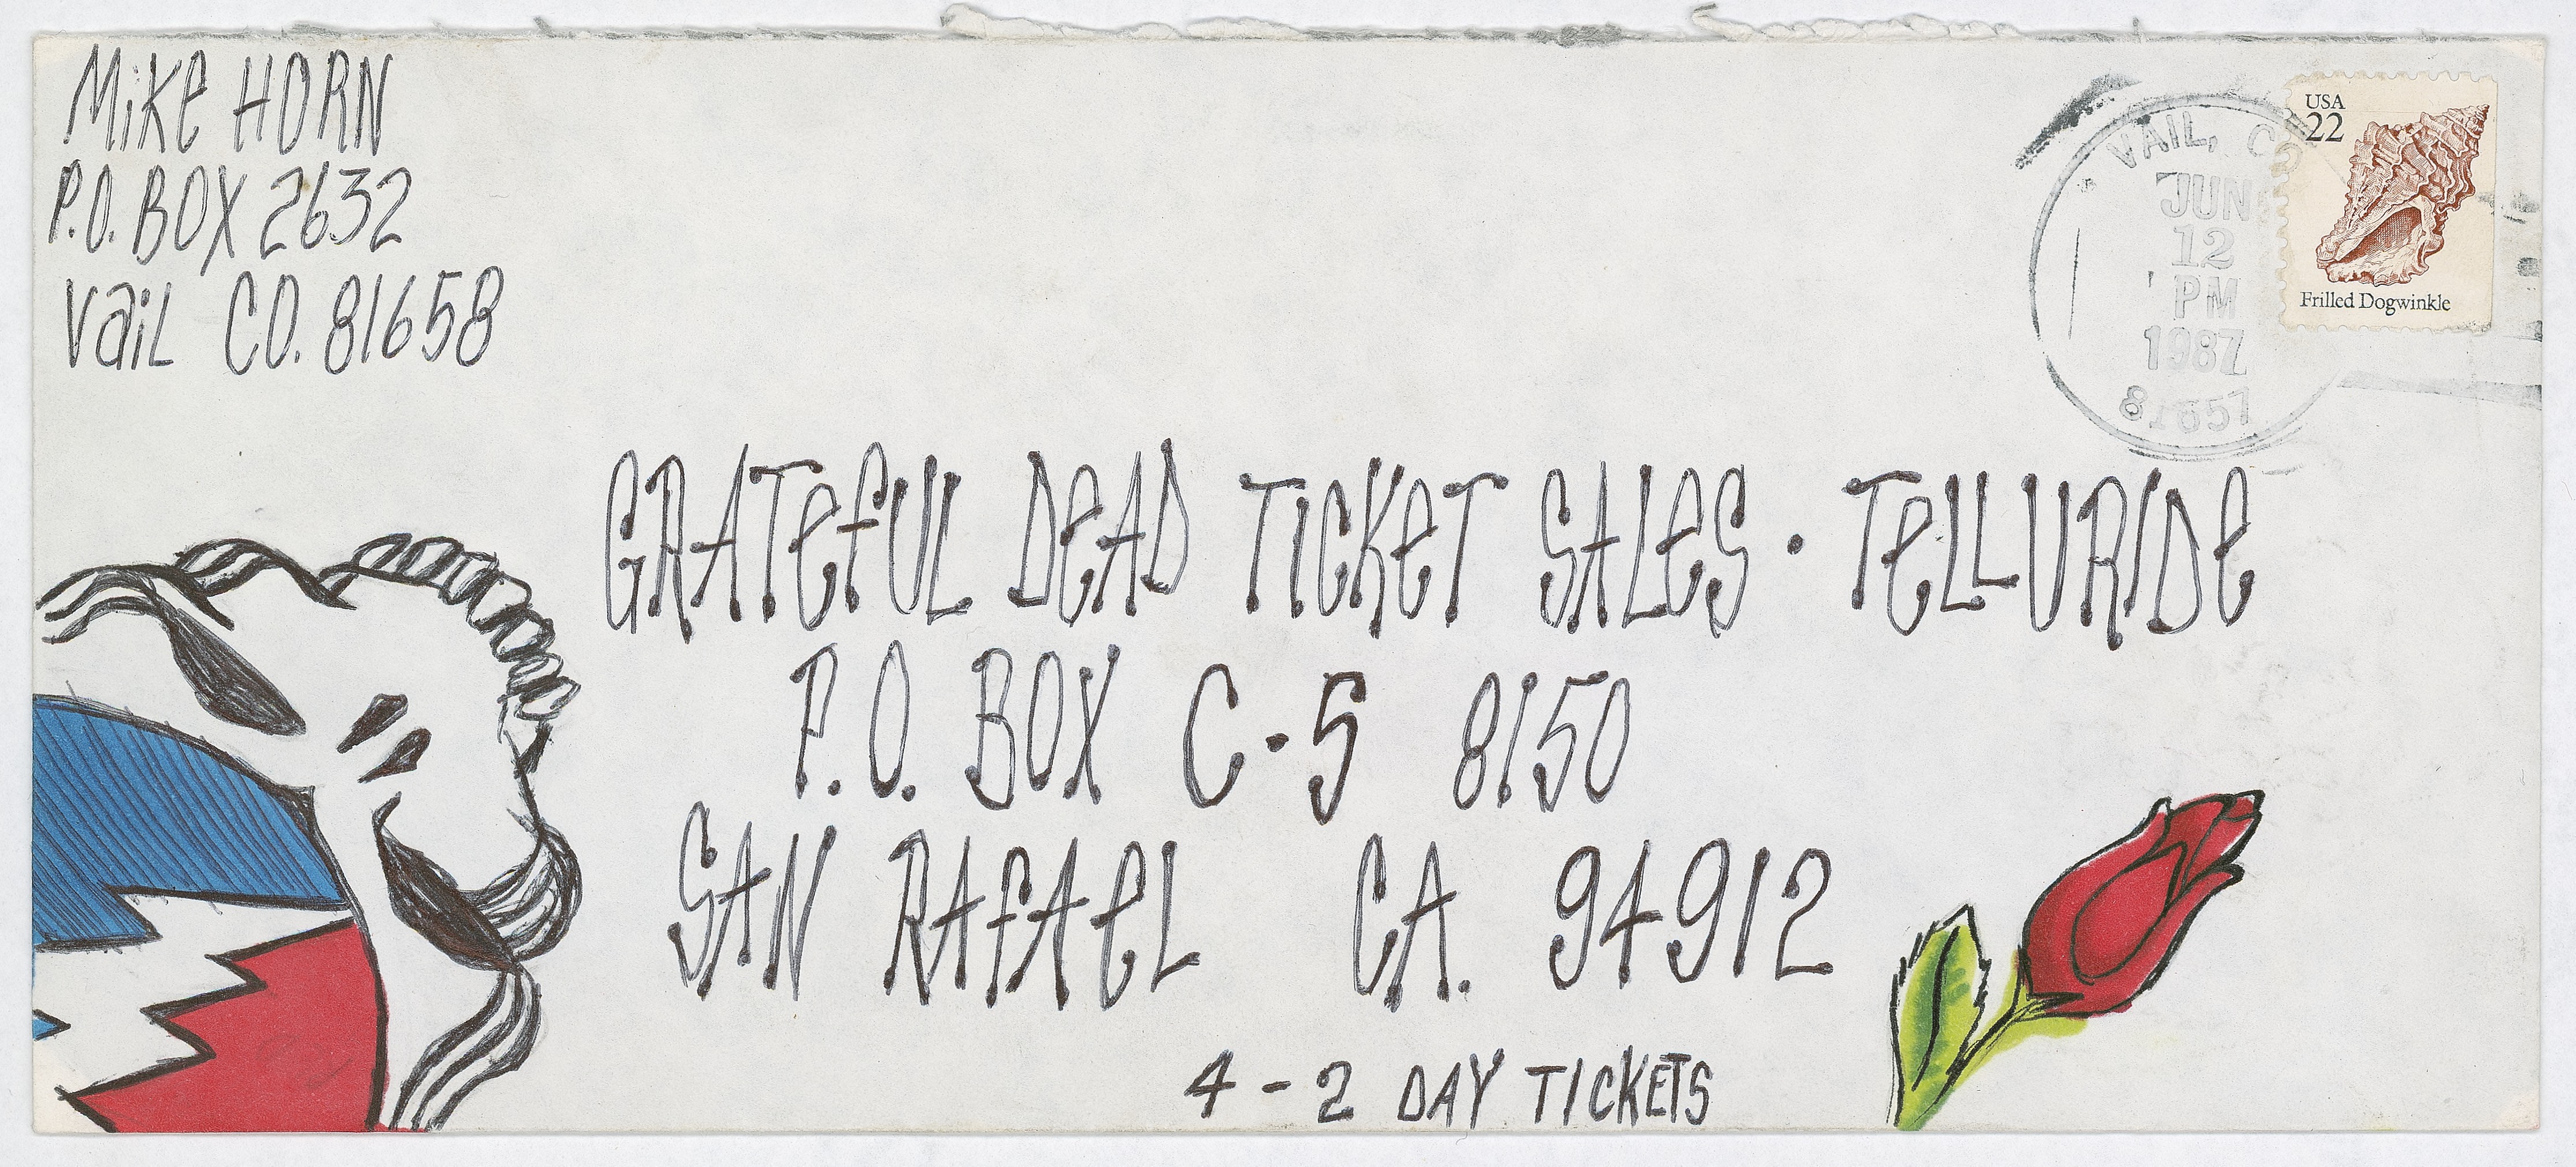 Mike HORN
P.O. BOX 2632
Vail CO. 81658
VAIL, CO
JUN
12
PM
1987
81657
USA
22
Frilled Dogwinkle
GRATefUL DeAD TiCKeT SALeS · TeLLURIDe
P.O. BOX C-5 8150
SAN RAfAeL CA. 94912
4 - 2 DAY TICKETS